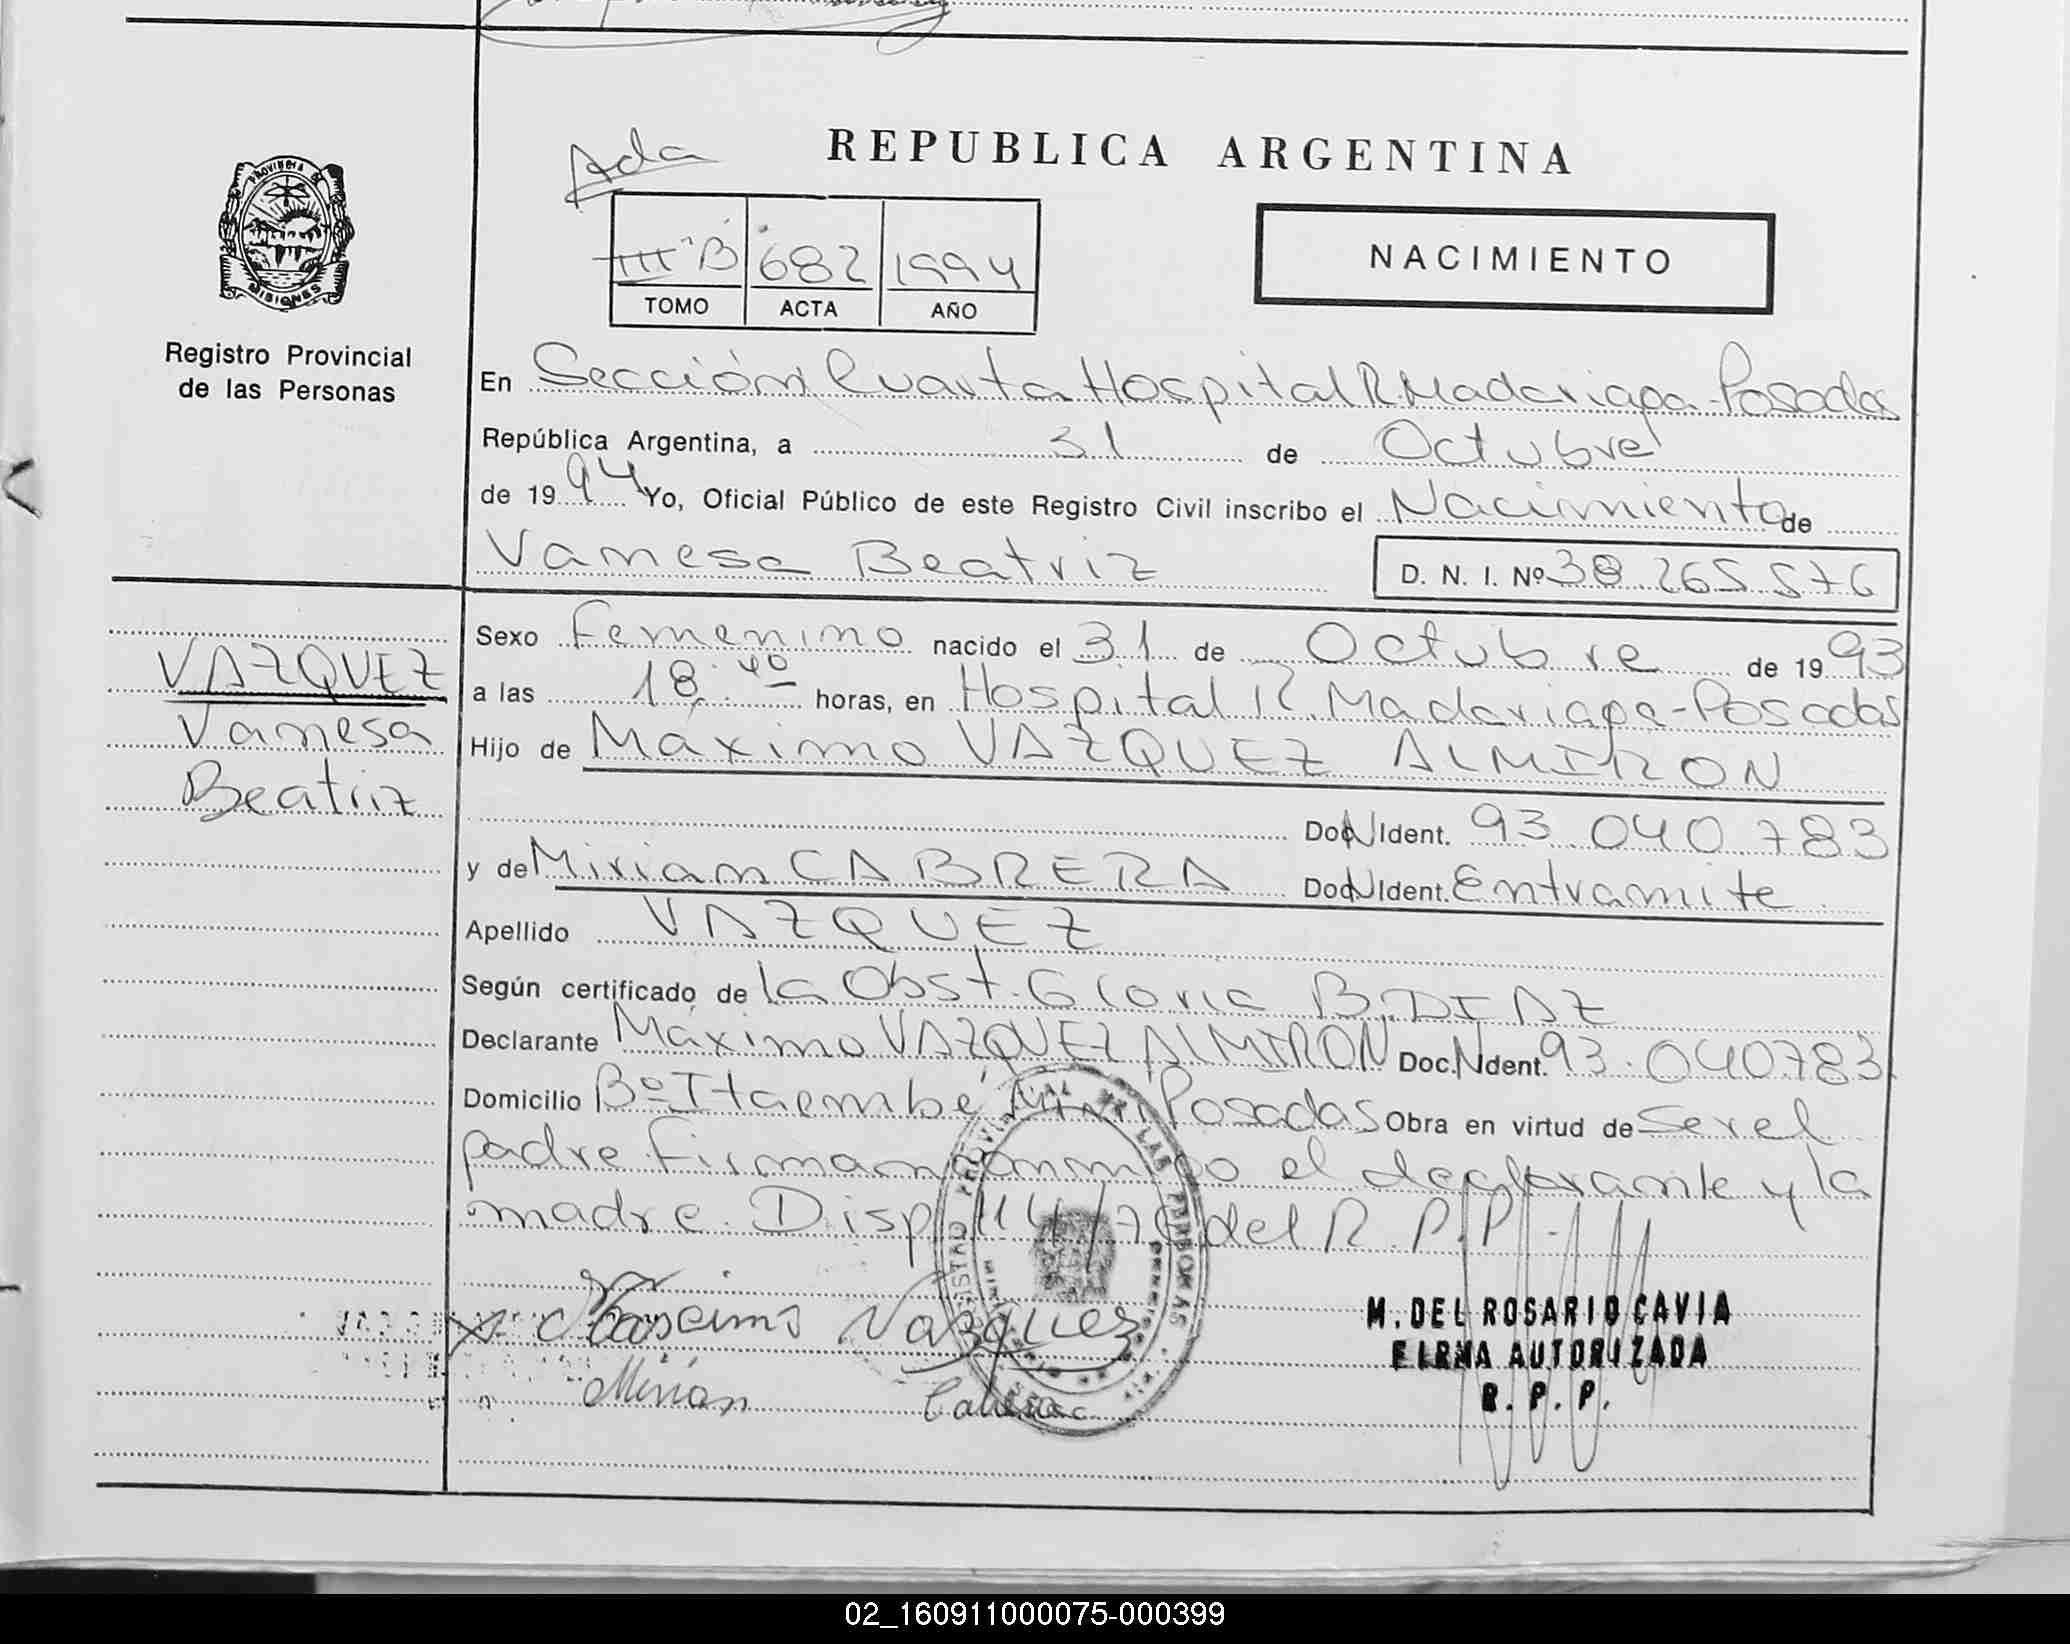 Ada
REPUBLICA ARGENTINA
III B 682 1994
TOMO ACTA AÑO
NACIMIENTO
PROVINCIA DE
MISIONES
Registro Provincial
de las Personas
En Sección Cuarta Hospital R. Madariaga - Posadas
República Argentina, a 31 de Octubre
de 1994 Yo, Oficial Público de este Registro Civil inscribo el Nacimiento de
Vanesa Beatriz D. N. I. Nº 38.265.576
Sexo Femenino nacido el 31 de Octubre de 1993
VAZQUEZ
Vanesa
Beatriz
a las 18:40 horas, en Hospital R. Madariaga - Posadas
Hijo de Máximo VAZQUEZ ALMIRON
Doc. N Ident. 93.040.783
y de Miriam CABRERA Doc. N Ident. Entramite
Apellido VAZQUEZ
Según certificado de la Obst. Gloria B. DIAZ
Declarante Máximo VAZQUEZ ALMIRON Doc. N Ident. 93.040783
Domicilio Bº Itaembé Miní Posadas Obra en virtud de ser el
padre. Firman conmigo el declarante y la
madre. Disp. 114/76 del R. P. P. -
Maximo Vazquez
Mirian Cabrera
M. DEL ROSARIO CAVIA
FIRMA AUTORIZADA
R. P. P.
02_160911000075-000399